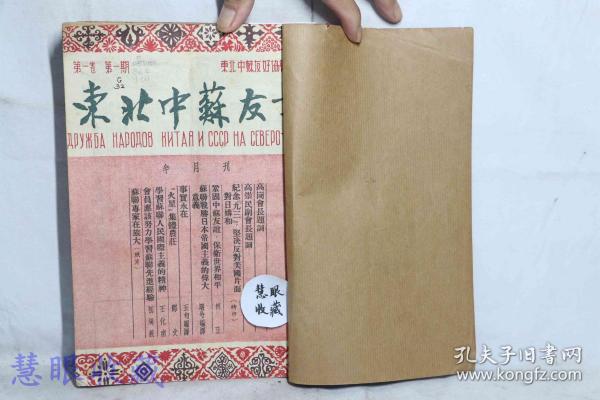 第一卷 第一期
東北中蘇友好協
G
32
東北中蘇友
ДРУЖБА НАРОДОВ КИТАЯ И СССР НА СЕВЕРО-
半月刊
高岡會長題詞
高崇民副會長題詞
紀念九三，堅決反對美國片面
對日媾和
鞏固中蘇友誼，保衛世界和平
蘇聯戰勝日本帝國主義的偉大
意義
事實永在
「火星」集體農莊
學習蘇聯人民國際主義的精神
會員應該努力學習蘇聯先進經驗
蘇聯專家在旅大
慧眼
收藏
慧眼收藏
孔夫子旧书网
www.kongfz.com